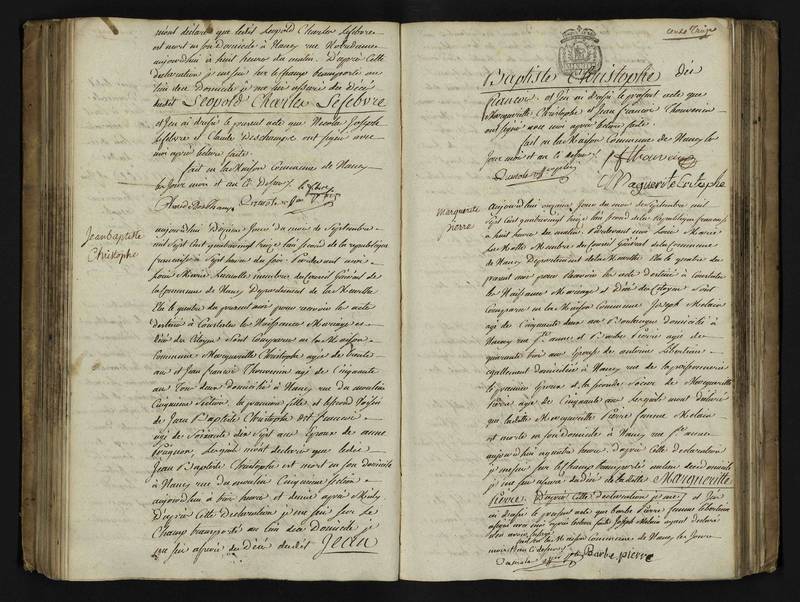 ment déclaré que ledit Leopold Charles Lefebvre
est mort en son domicile à Nancy rue Notredame
aujourdhui à huit heures du matin. D'après cette
déclaration je me suis sur le champ transporté au
lieu dudit Domicile je me suis assuré du décès
dudit Leopold Charles Lefebvre
et j'en ai dressé le present acte que Nicolas Joseph
Lefebvre et Claude Deschamps ont signé avec
moi après lecture faite.
fait en la Maison Commune de Nancy
les jour mois et an ci dessus
Claude Deschamps
Jean baptiste
Christophe
aujourdhui dixieme jour du mois de Septembre
mil Sept Cent quatrevingt treize l'an second de la republique
française à Sept heures du soir Pardevant moi
Louis Marie membre du Conseil Général de
la commune de Nancy Departement de la Meurthe
Elu le quatre du present mois pour recevoir les actes
destinés à Constater les Naissances Mariages et
Décès des Citoyens sont comparus en la Maison
Commune Margueritte Christophe agée de trente
ans et Jean francois Thouvenin agé de Cinquante
un ans tous deux domiciliés à Nancy rue du moulin
Cinquieme Section, la premiere fille et le second
de Jean Baptiste Christophe dit francœur
agé de Soixante dix Sept ans Epoux de anne
lesquels m'ont déclaré que ledit
Jean Baptiste Christophe est mort en son domicile
à Nancy rue du moulin Cinquieme Section
aujourdhui à trois heures et demie après Midy
D'après cette Déclaration je me suis sur le
Champ transporté au lieu du Domicile je
me suis assuré du Décès dudit Jean
Baptiste Christophe dit
francœur. et j'en ai dressé le present acte que
Margueritte Christophe et Jean francois Thouvenin
ont signé avec moi après lecture faite.
fait en la Maison Commune de Nancy les
jour mois et an ci dessus
J f thouvenin
Marguerite
pierre
aujourdhui onzieme jour du mois de Septembre mil
Sept Cent quatrevingt treize l'an second de la Republique française
à huit heures du matin. Pardevant moi Louis Marie
Membre du Conseil Général de la Commune
de Nancy Departement de la Meurthe Elu le quatre du
present mois pour recevoir les actes destinés à Constater
les Naissances Mariages et Décès des Citoyens sont
Comparus en la Maison Commune Joseph Melain
agé de Cinquante deux ans domicilié à
Nancy rue Ste anne et Barbe Pierre agée de
quarante trois ans Epouse de antoine
egallement domiciliée à Nancy rue de la poissonnerie
le premier Epoux et la seconde Soeur de Margueritte
Pierre agée de Cinquante ans lesquels m'ont déclaré
que ladite Margueritte Pierre femme Melain
est morte en son domicile à Nancy rue Ste anne
aujourdhui à quatre heures. d'après cette déclaration
je me suis sur le champ transporté au lieu du domicile
je me suis assuré du décès de ladite Margueritte
Pierre. D'après cette déclaration je me et j'en
ai dressé le present acte que barbe Pierre femme
a signé avec moi après lecture faite Joseph Melain ayant déclaré
fait en la Maison Commune de Nancy les jour
mois et an ci dessus
Barbe pierre